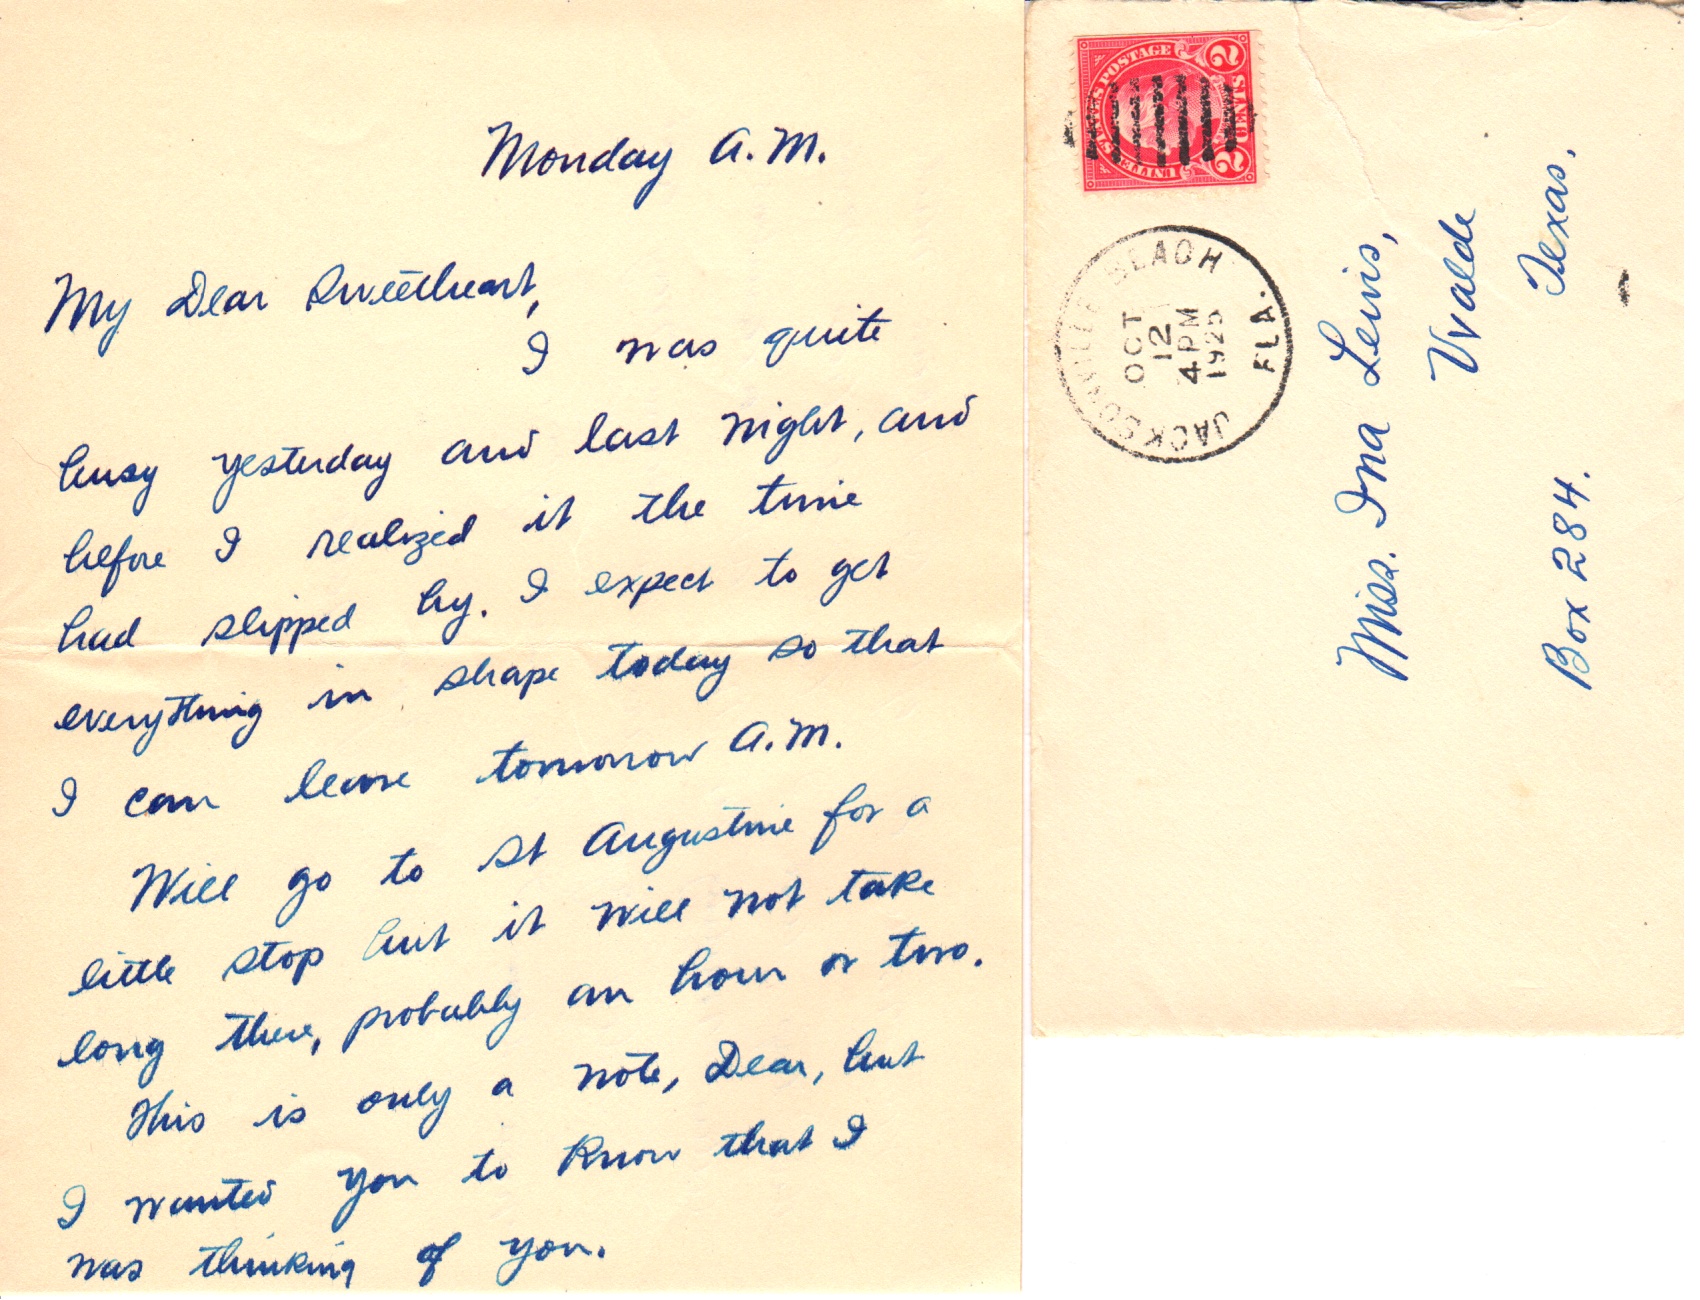 Monday A.M.
My Dear Sweetheart,
I was quite
busy yesterday and last night, and
before I realized it the time
had slipped by. I expect to get
everything in shape today so that
I can leave tomorrow A.M.
Will go to St Augustine for a
little stop but it will not take
long there, probably an hour or two.
This is only a note, Dear, but
I wanted you to know that I
was thinking of you.
POSTAGE
2 2
JACKSONVILLE BEACH
FLA.
OCT
12
4 PM
1925
Miss. Ina Lewis,
Uvalde
Box 284. Texas,